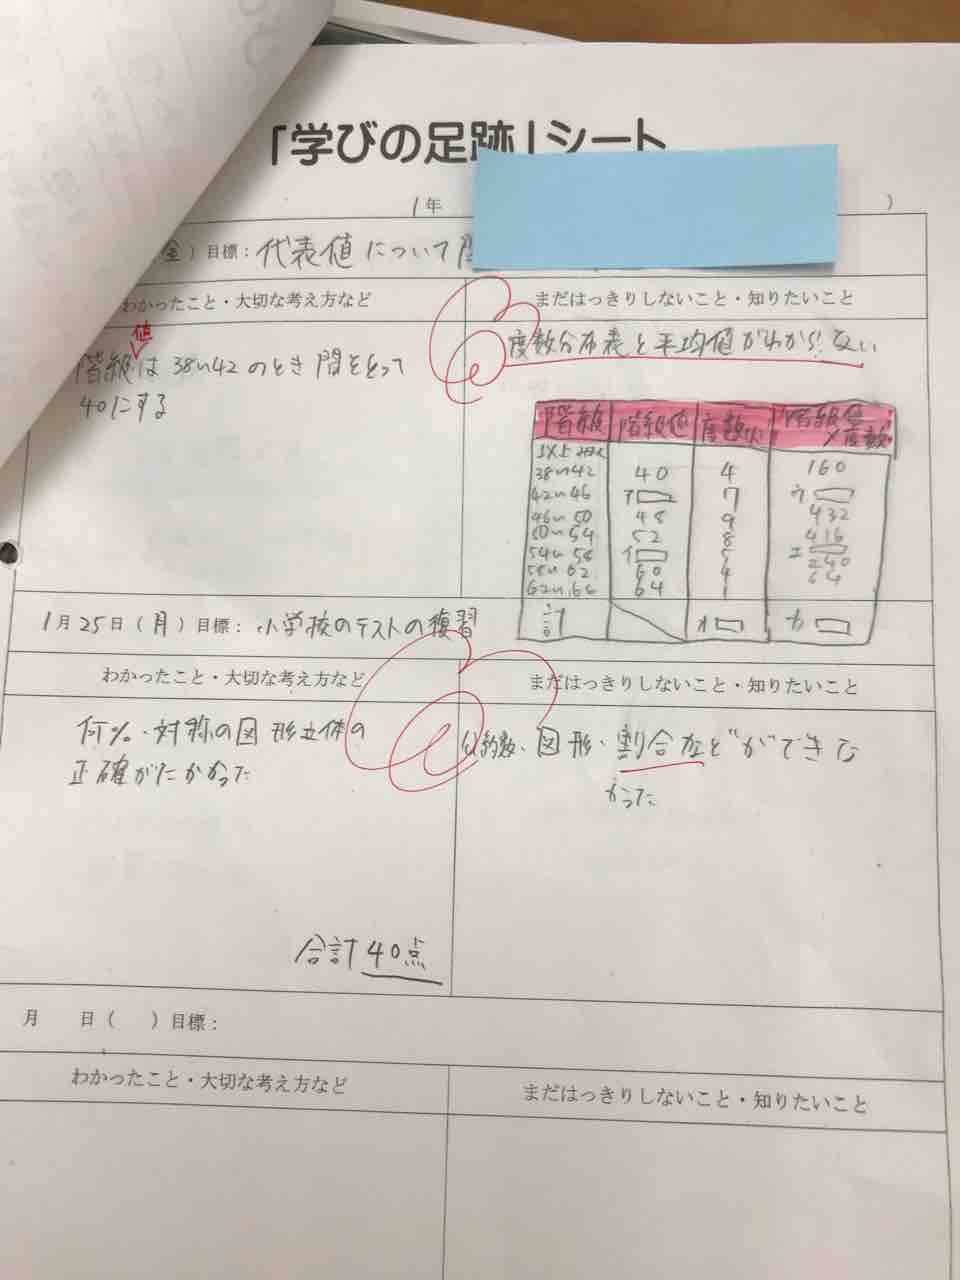 「学びの足跡」シート
1年 )
(金)目標：代表値について
わかったこと・大切な考え方など まだはっきりしないこと・知りたいこと
値
階級は38〜42のとき間をとって
40にする
度数分布表と平均値がわからない
階級 階級値 度数 階級値×度数
以上 未満
38〜42 40 4 160
42〜46 ア 7 ウ
46〜50 48 9 432
50〜54 52 8 416
54〜58 イ 5 エ
58〜62 60 4 240
62〜66 64 1 64
計 オ カ
1月25日(月)目標：小学校のテストの復習
わかったこと・大切な考え方など まだはっきりしないこと・知りたいこと
何%・対称の図形立体の
正確がたかかった
公約数、図形・割合などができな
かった
合計40点
月 日( )目標：
わかったこと・大切な考え方など まだはっきりしないこと・知りたいこと